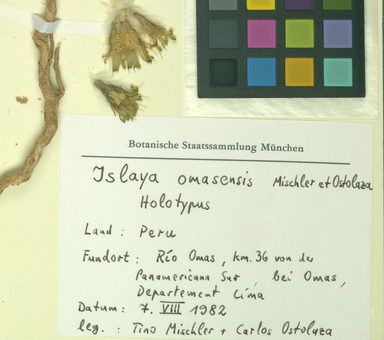 Botanische Staatssammlung München
Islaya omasensis Mischler et Ostolaza
Holotypus
Land : Peru
Fundort : Río Omas, km. 36 von der
Panamericana Sur, bei Omas,
Departement Lima
Datum : 7. VIII 1982
leg. : Tino Mischler + Carlos Ostolaza